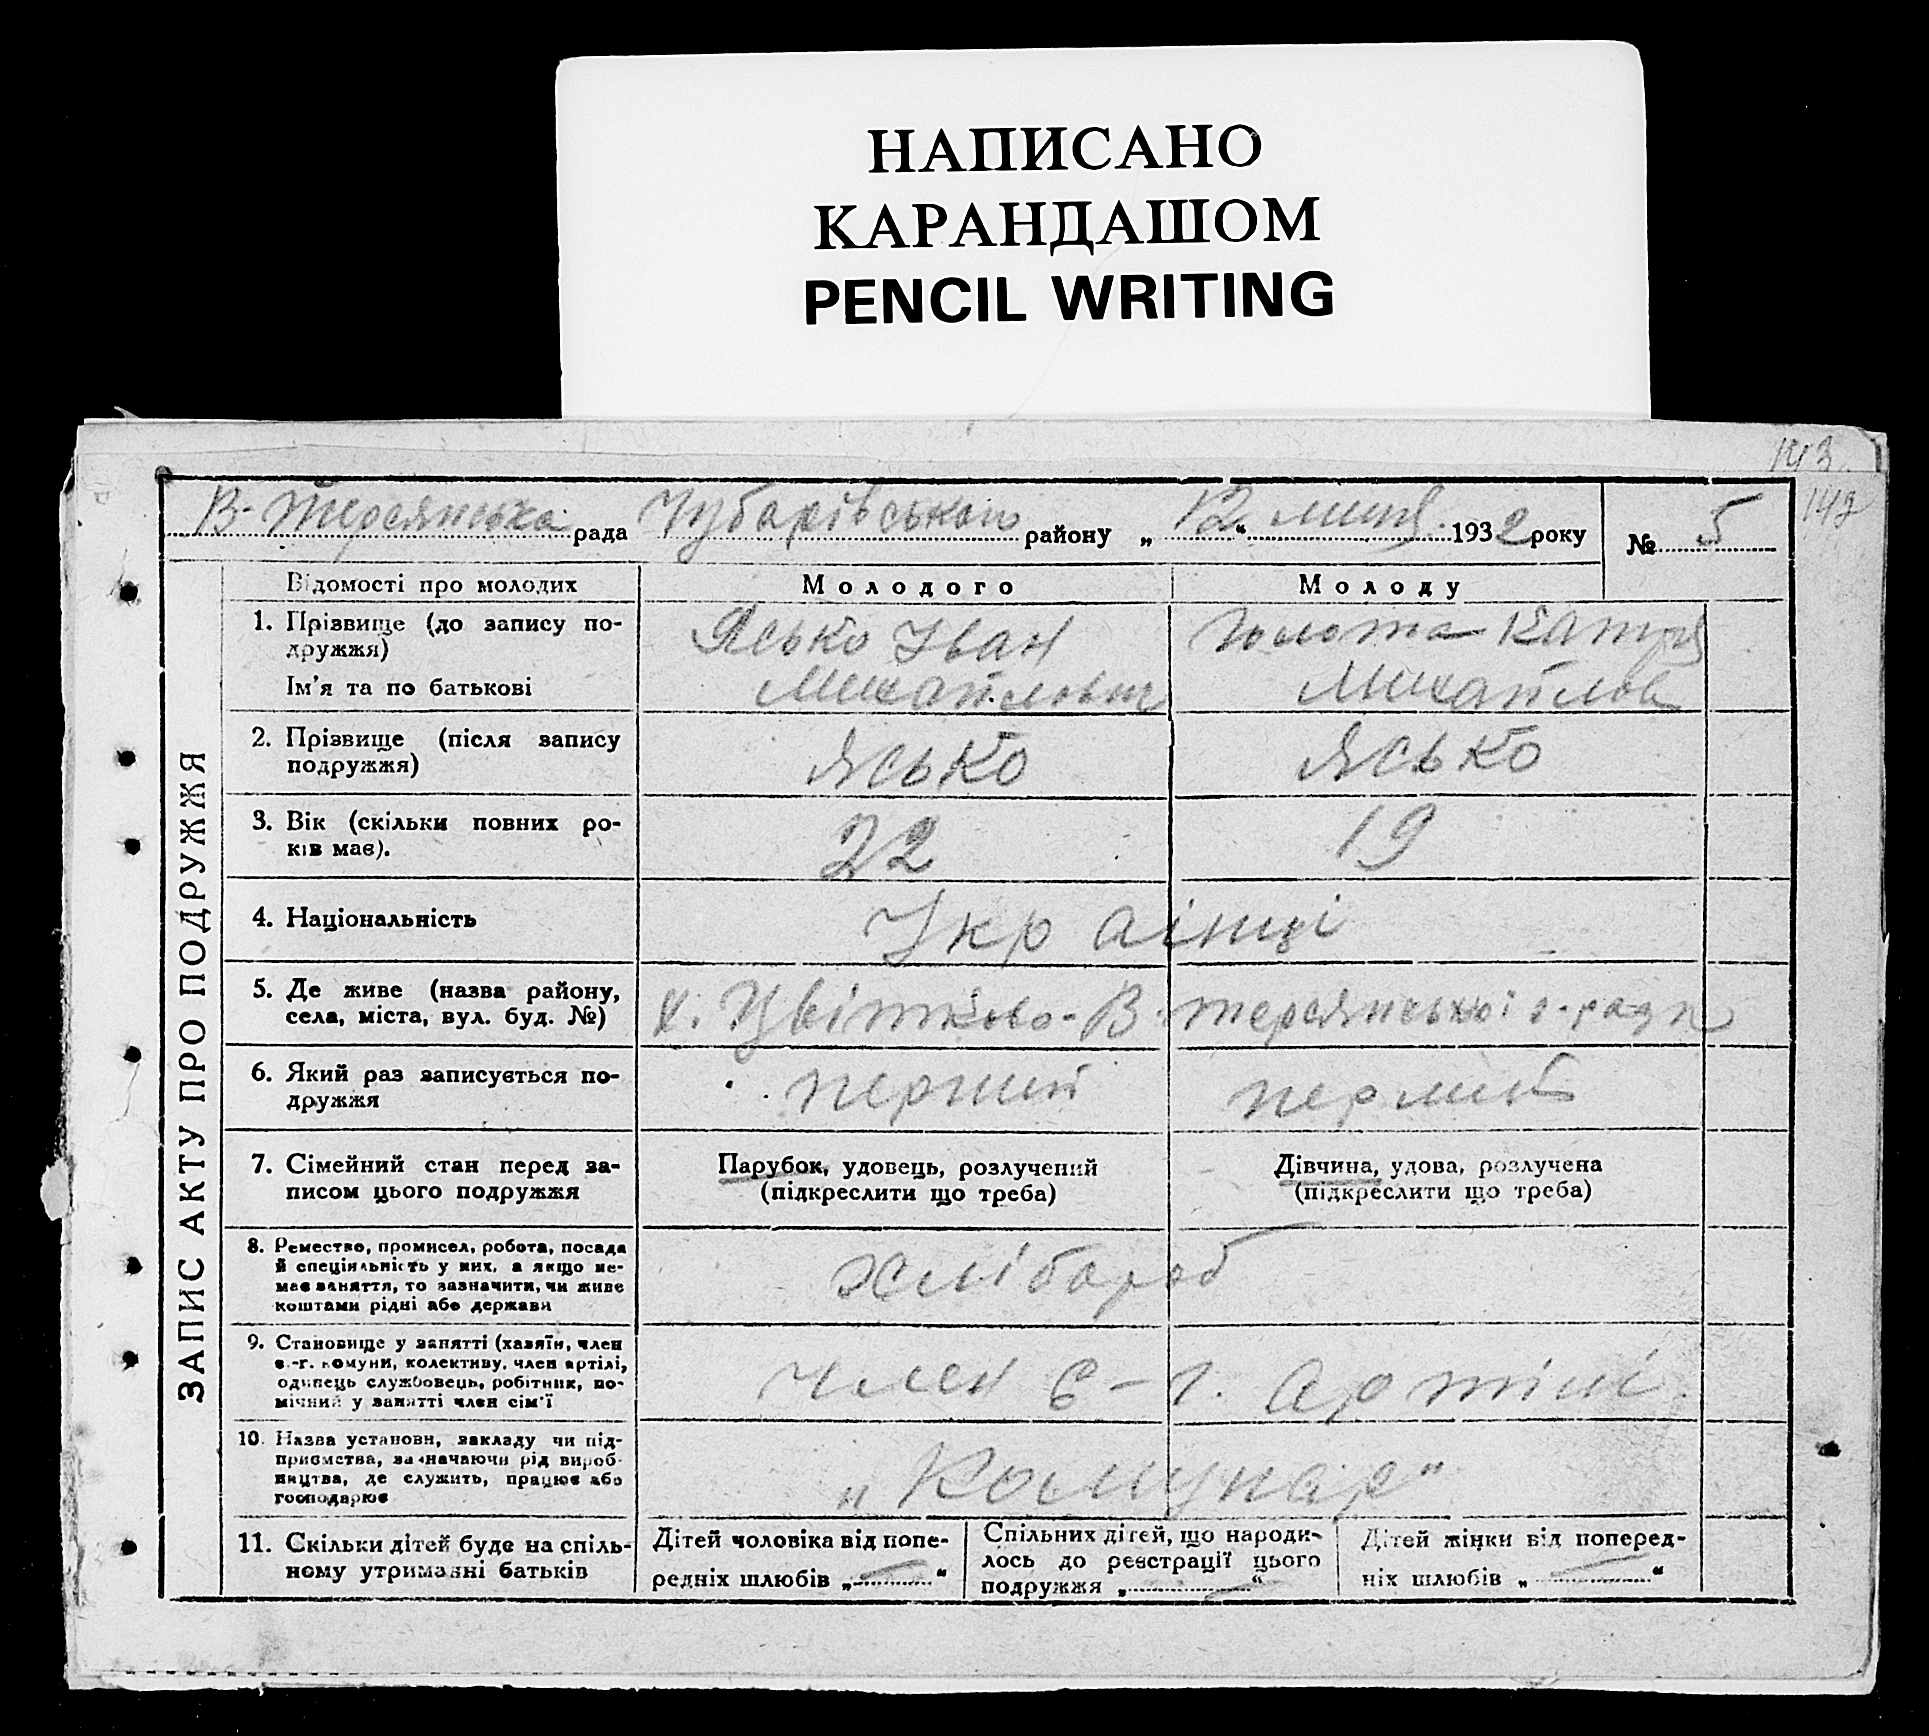 НАПИСАНО
КАРАНДАШОМ
PENCIL WRITING
143
142
В-Терсянська рада Чубарівського району „12“ липня 1932 року № 5
ЗАПИС АКТУ ПРО ПОДРУЖЖЯ
Відомості про молодих Молодого Молоду
1. Прізвище (до запису по-
дружжя)
Ім'я та по батькові
Ясько Іван
Михайлович
Golota Катря
Михайлов
2. Прізвище (після запису
подружжя)
Ясько Ясько
3. Вік (скільки повних ро-
ків має).
22 19
4. Національність
Українці
5. Де живе (назва району,
села, міста, вул. буд. №)
х. Цвітково-В.терсянської с-ради
6. Який раз записується по-
дружжя
перший перший
7. Сімейний стан перед за-
писом цього подружжя
Парубок, удовець, розлучений
(підкреслити що треба)
Дівчина, удова, розлучена
(підкреслити що треба)
8. Ремество, промисел, робота, посада
й спеціяльність у них, а якщо не-
має заняття, то зазначити, чи живе
коштами рідні або держави
хлібороб
9. Становище у занятті (хазяїн, член
с.-г. комуни, колективу, член артілі,
одинець службовець, робітник, по-
мічний у занятті член сім'ї
член с-г. артілі
10. Назва установи, закладу чи під-
приємства, зазначаючи рід вироб-
ництва, де служить, працює або
господарює
„Комунар“
11. Скільки дітей буде на спіль-
ному утриманні батьків
Дітей чоловіка від попе-
редніх шлюбів „ — “
Спільних дітей, що народи-
лось до реєстрації цього
подружжя „ — “
Дітей жінки від поперед-
ніх шлюбів „ — “